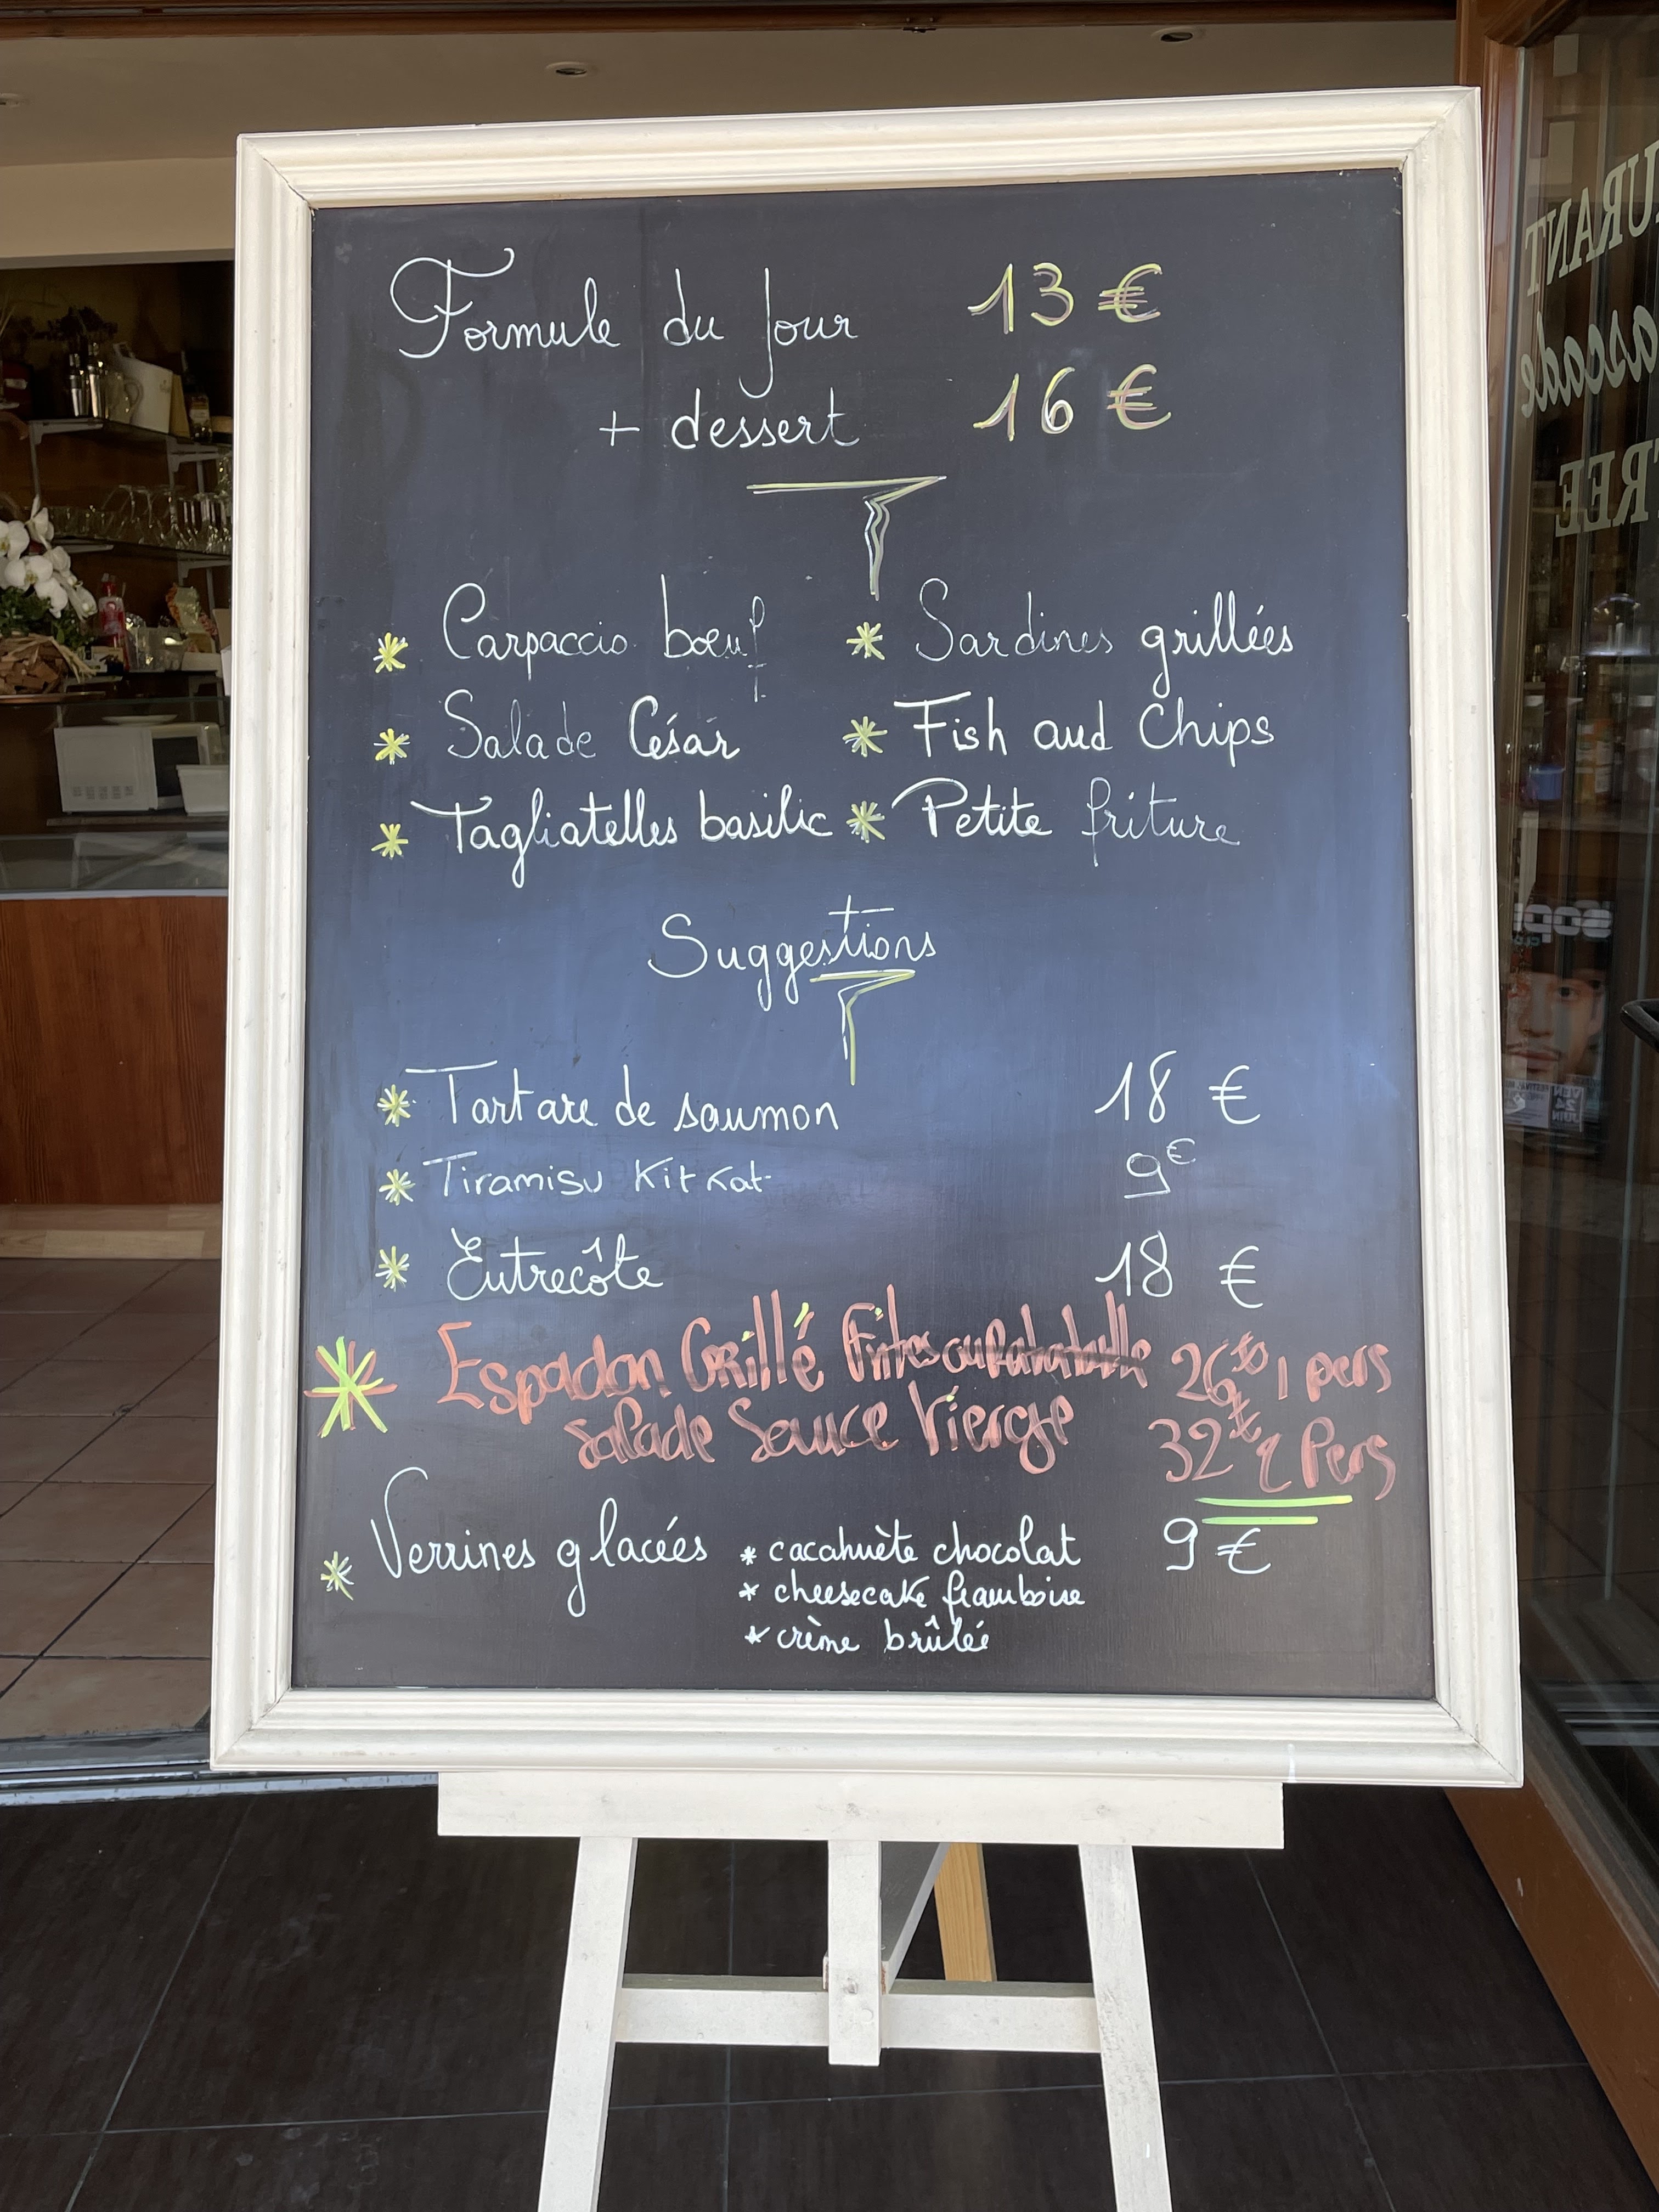 Formule du jour 13 €
+ dessert 16 €
* Carpaccio bœuf * Sardines grillées
* Salade César * Fish and Chips
* Tagliatelles basilic * Petite friture
Suggestions
* Tartare de saumon 18 €
* Tiramisu Kit Kat 9€
* Entrecôte 18 €
* Espadon Grillé Frites ou 26 1 pers
Salade Sauce Vierge 32 2 Pers
* Verrines glacées * cacahuète chocolat 9 €
* cheesecake framboise
* crème brûlée
URANT
ascade